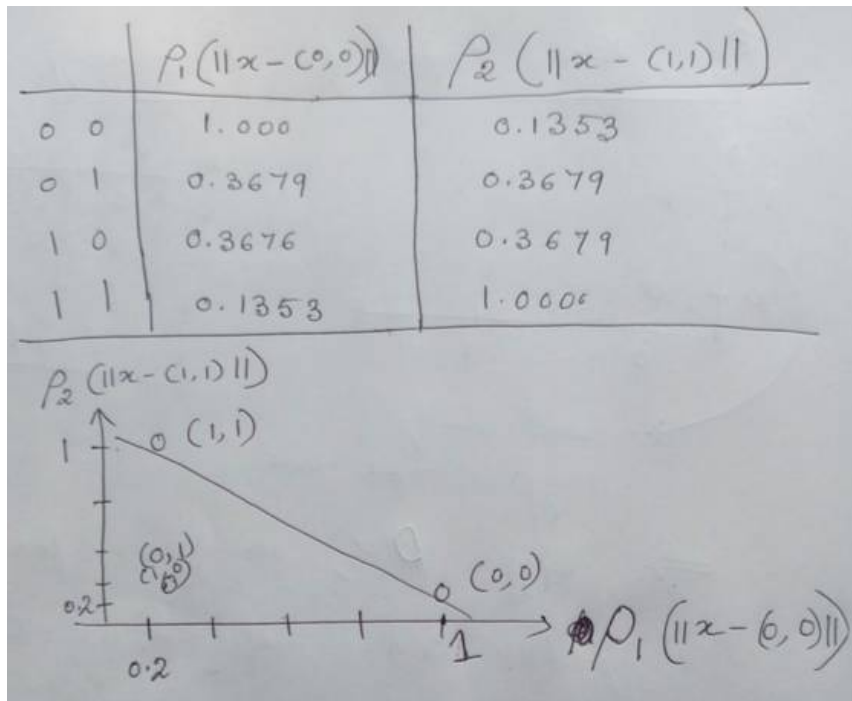 ρ₁(||x-(0,0)||) ρ₂(||x-(1,1)||)
0 0 1.000 0.1353
0 1 0.3679 0.3679
1 0 0.3676 0.3679
1 1 0.1353 1.0000
ρ₂(||x-(1,1)||)
1 (1,1)
(0,1)
(1,0)
(0,0)
0.2
0.2 1 ρ₁(||x-(0,0)||)